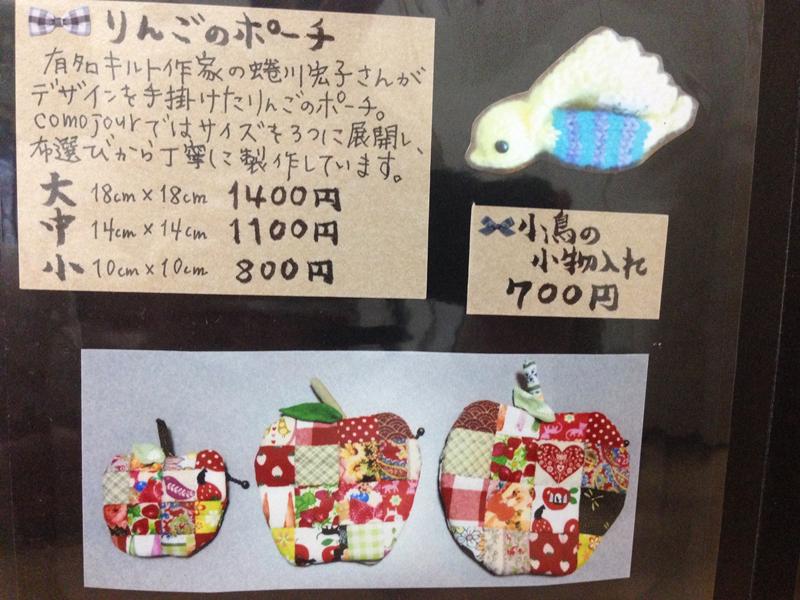 りんごのポーチ
有名キルト作家の蜷川宏子さんが
デザインを手掛けたりんごのポーチ。
comojourではサイズを3つに展開し、
布選びから丁寧に製作しています。
大 18cm×18cm 1400円
中 14cm×14cm 1100円
小 10cm×10cm 800円
小鳥の
小物入れ
700円